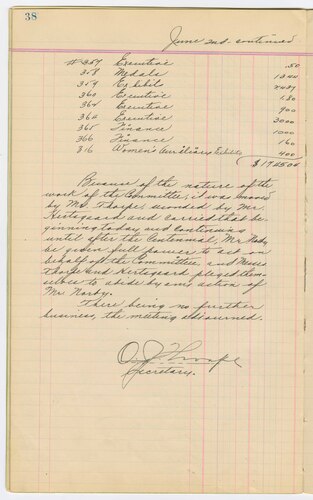 38
June 2nd continued
#357 Executive .50
358 Medals 1344
359 Exhibits 2437
360 Executive 1.30
362 Executive 900
364 Executive 3000
365 Finance 1000
366 Finance 160
316 Women's Auxiliary Exhibits 400
Because of the nature of the
work of the Committee, it was moved
by Mr. Thorpe, seconded by Mr.
Hertsgaard and carried that be-
ginning today and continuing
until after the Centennial, Mr. Norby
be given full power to act on
behalf of the Committee and Messrs
Thorpe and Hertsgaard pleged them-
selves to abide by any action of
Mr Norby.
There being no further
business, the meeting adjourned.
O J Thorpe
Secretary.